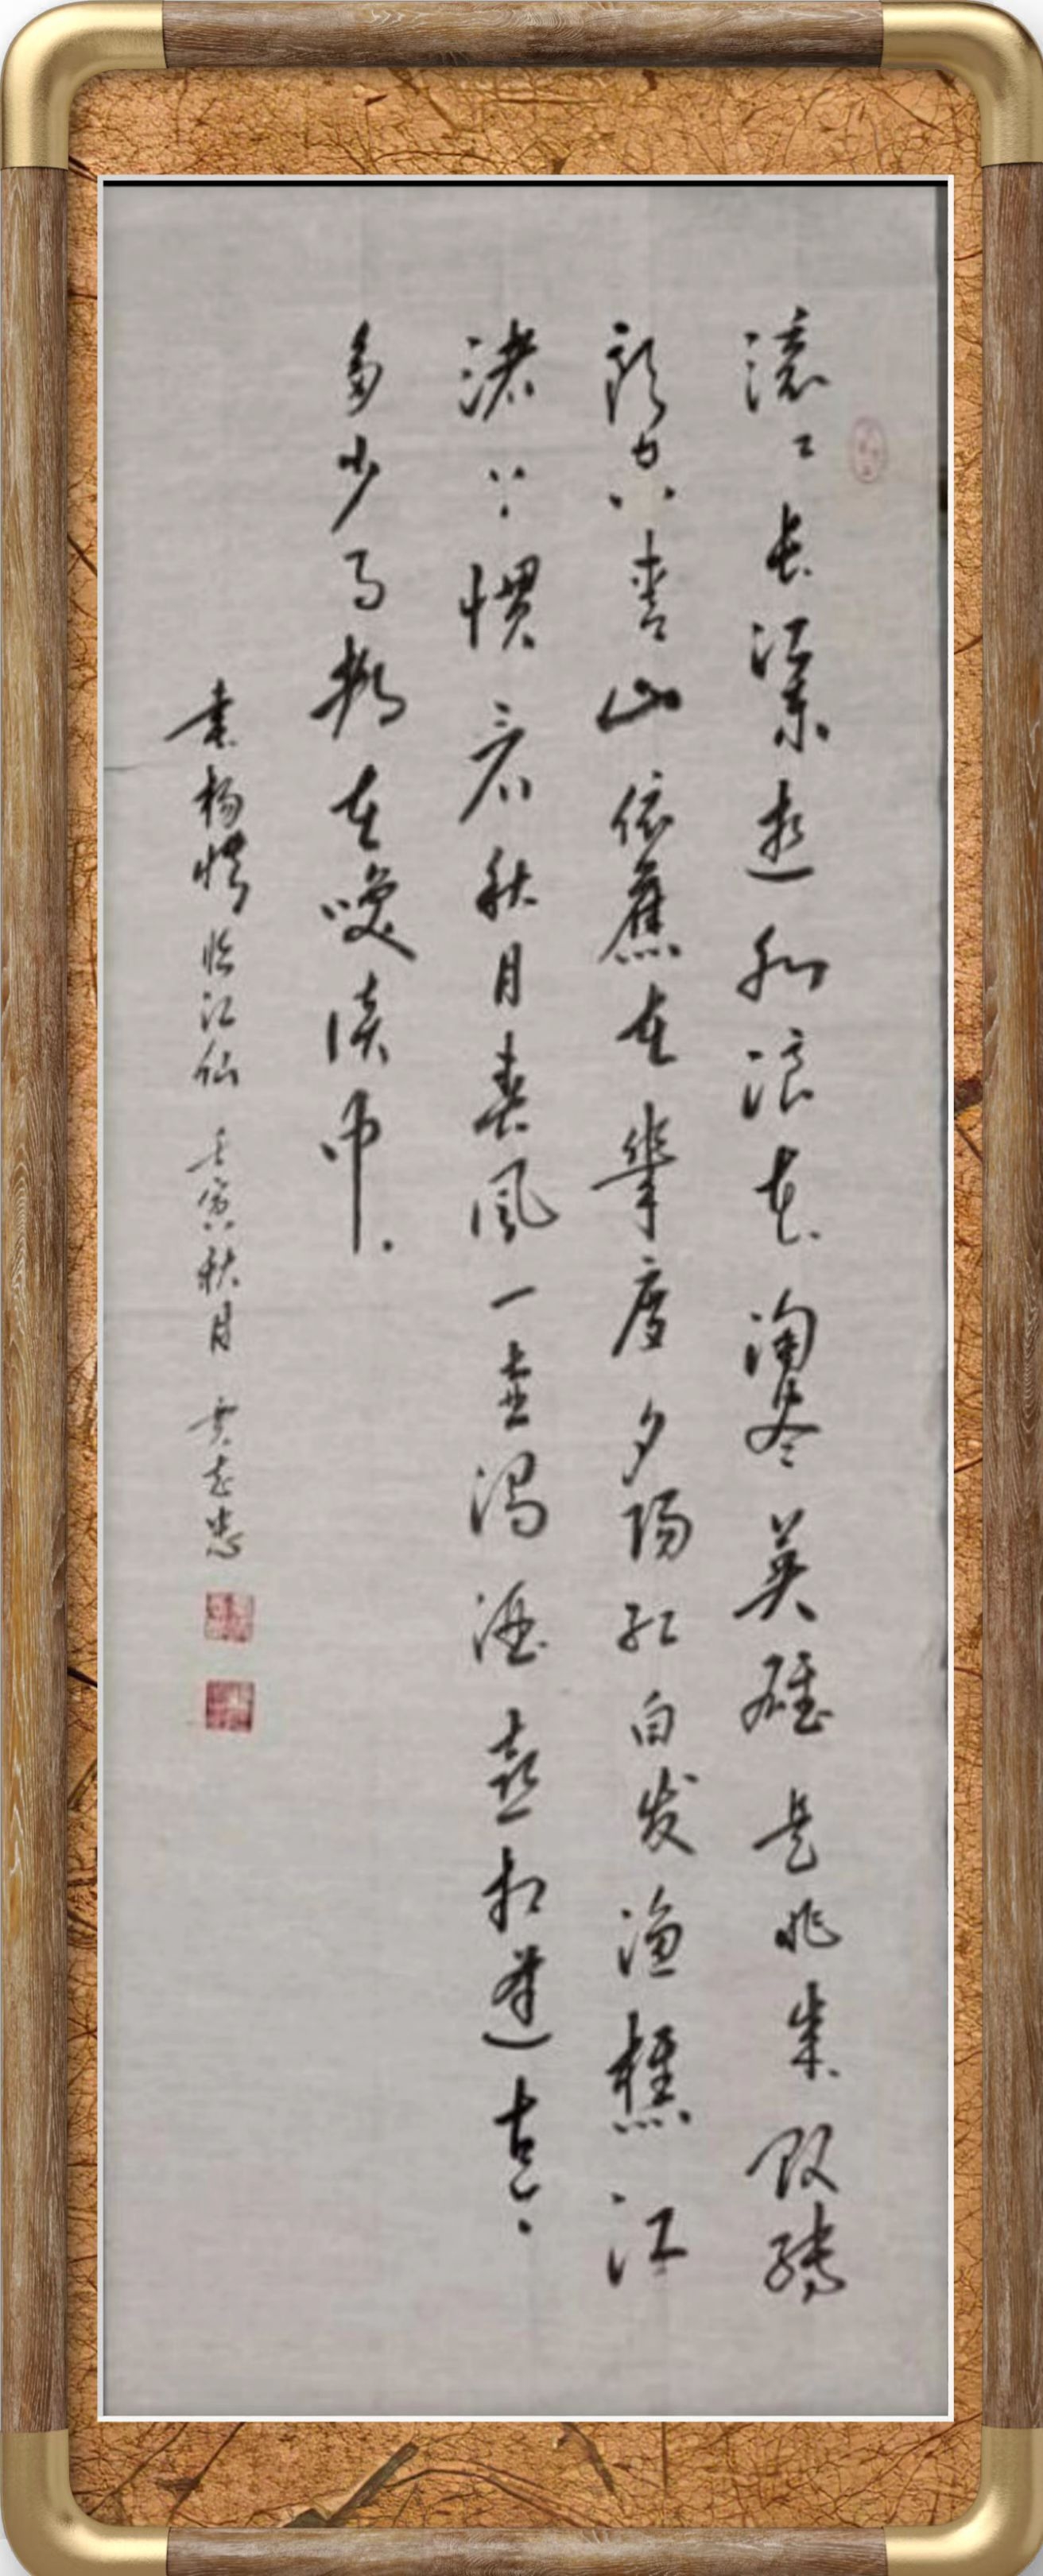 滚々长江東逝水浪花淘尽英雄是非成败轉
头空青山依舊在幾度夕阳红白发渔樵江
渚上惯看秋月春风一壶浊酒喜相逢古今
多少事都在笑谈中
書杨慎临江仙 壬寅秋月 志忠